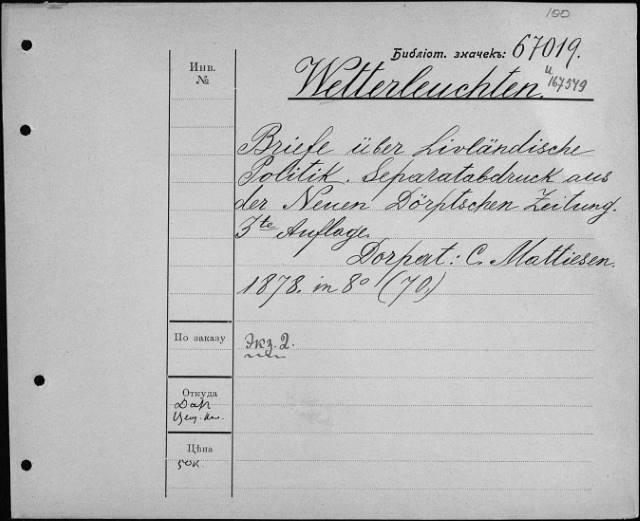 100
Библіот. значекъ: 67019.
и
167549
Инв.
№
Wetterleuchten.
Briefe über Livländische
Politik. Separatabdruck aus
der Neuen Dörptschen Zeitung.
3te Auflage.
Dorpat: C. Mattiesen.
1878. in 8o (70.)
По заказу
Экз. 2.
Откуда
Дар
Цѣна
50к